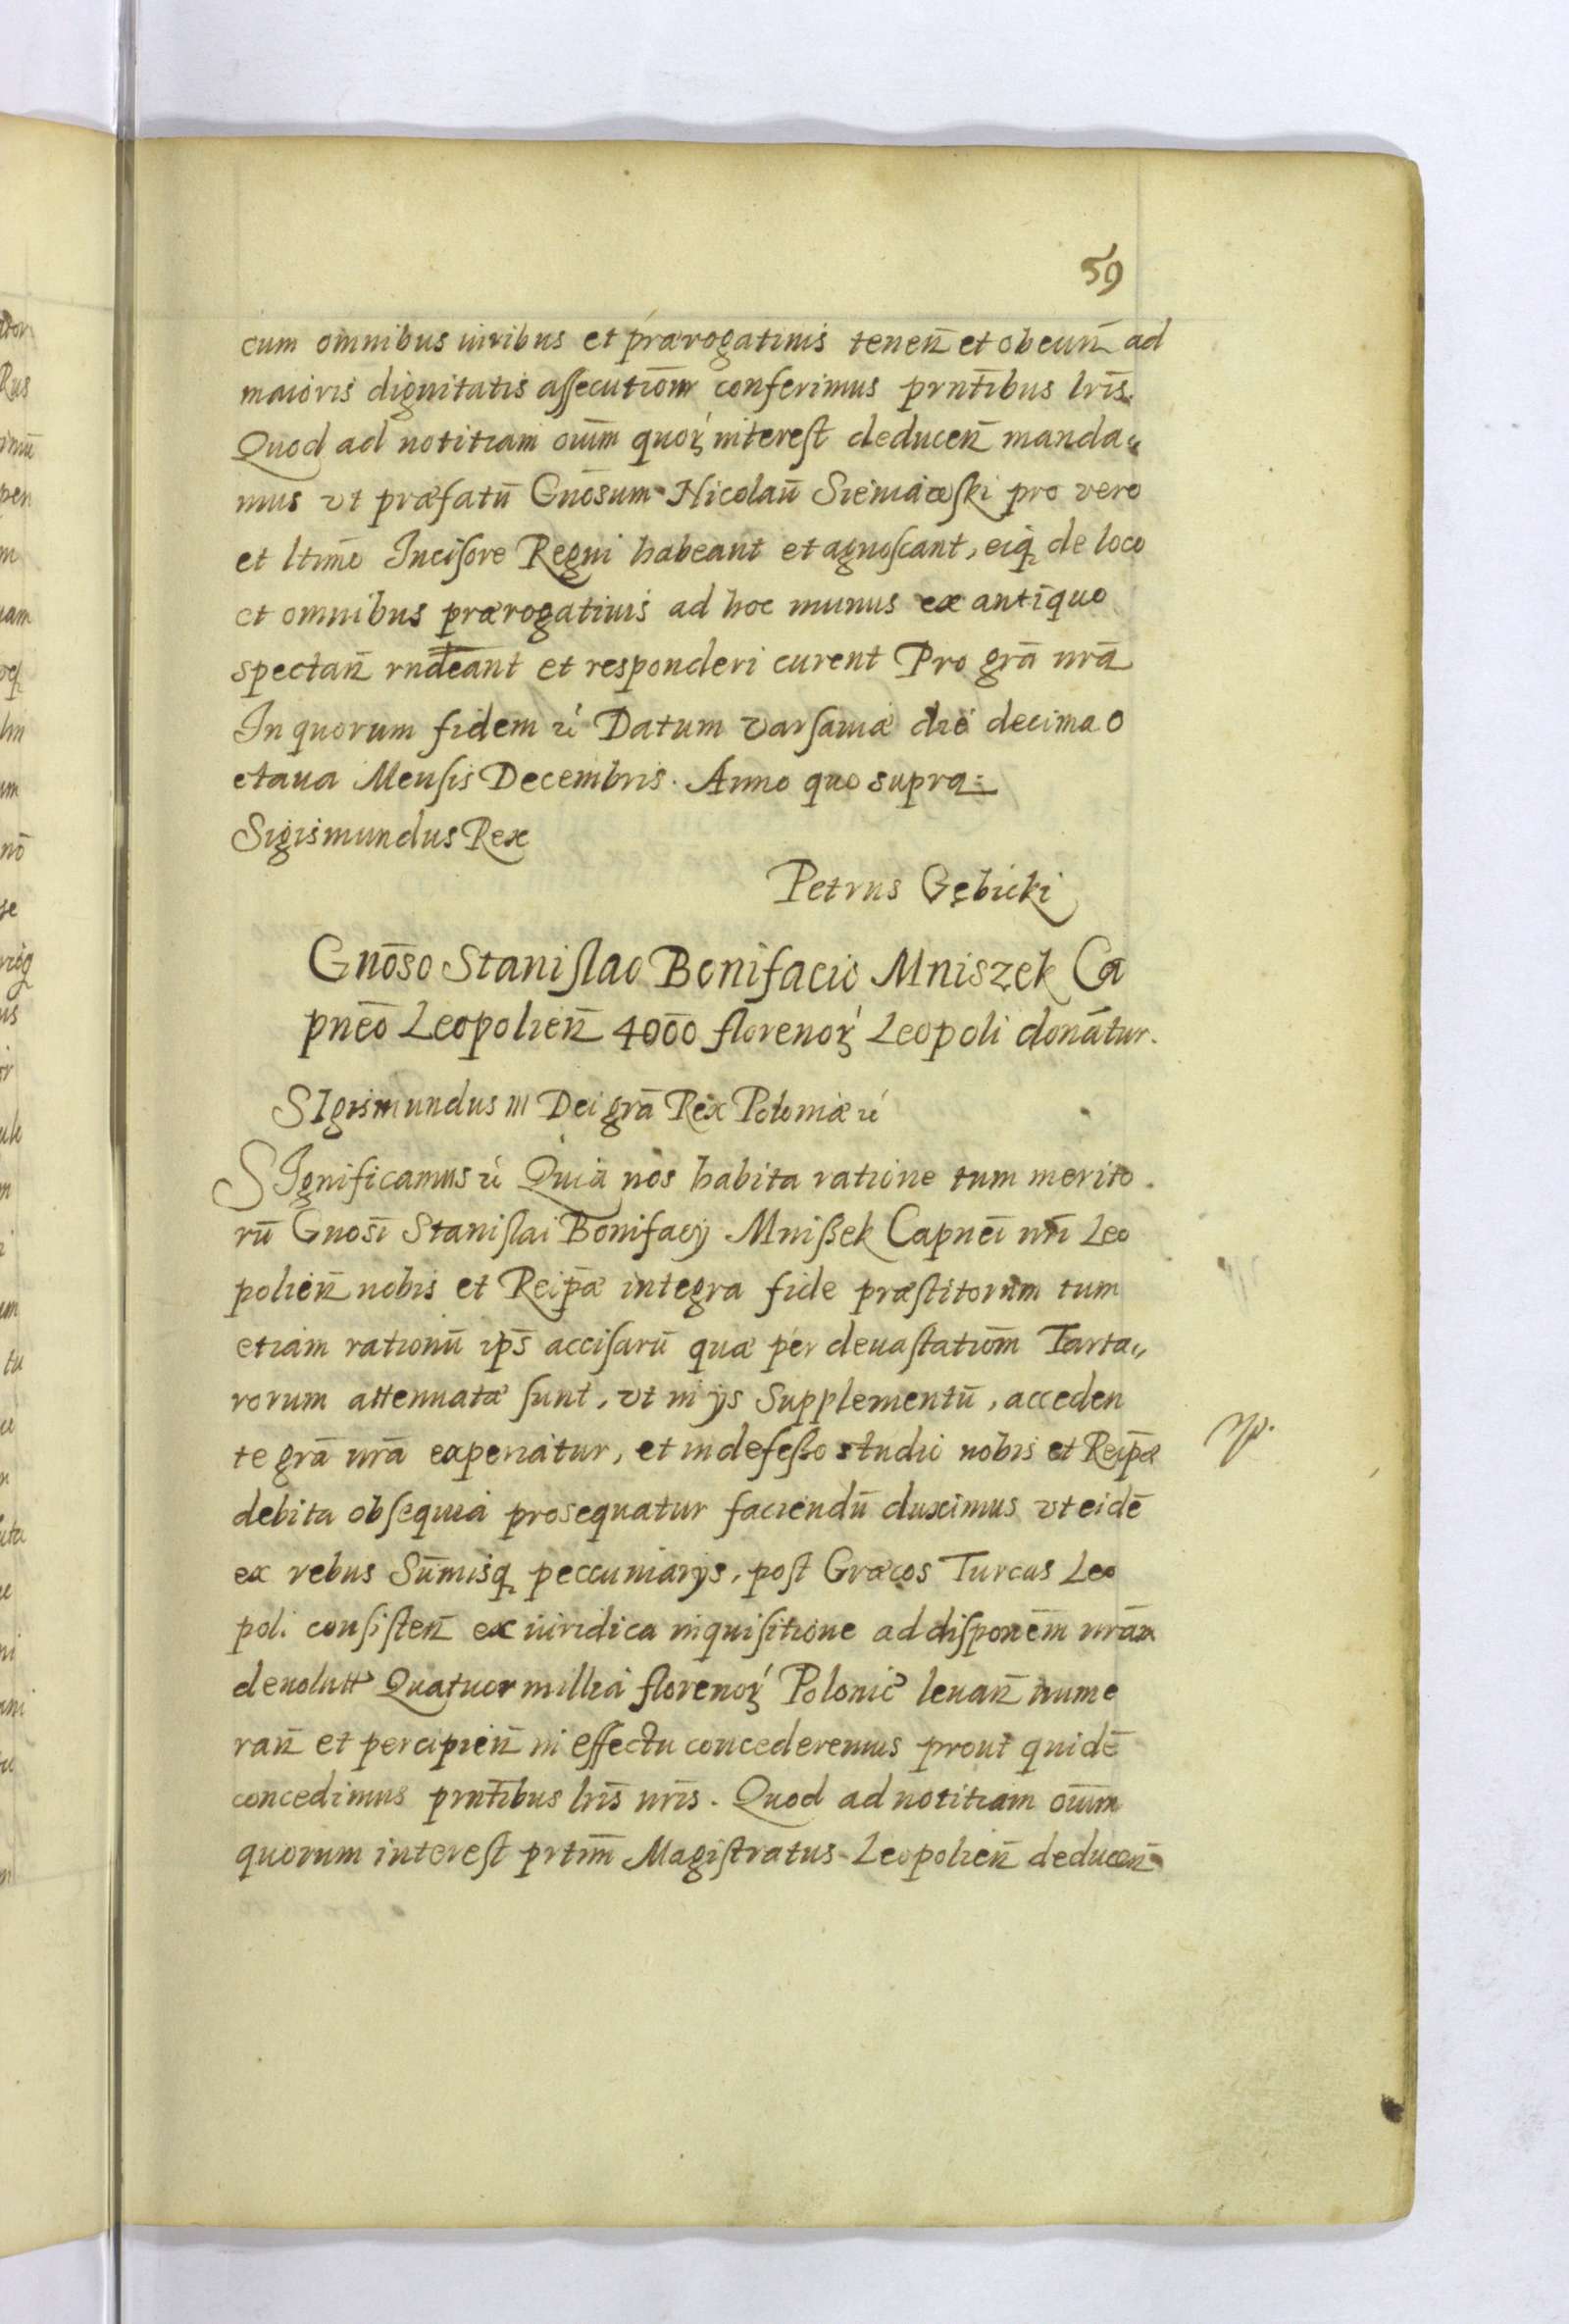 59
cum omnibus iuribus et prærogatiuis tenen̄ et obeun̄ ad
maioris dignitatis assecutiōnm conferimus prntībus lrīs.
Quod ad notitiam oīum quorꝫ interest deducen̄ manda„
mus vt præfatū Gnōsum Nicolaū Sieniawski pro vero
et ltīmo Incisore Regni habeant et agnoscant, eiq de loco
et omnibus prærogatiuis ad hoc munus ex antiquo
spectan̄ rndēant et responderi curent Pro grā nrā
In quorum fidem ꝛć Datum Varsauiæ die decima o
ctaua Mensis Decembris. Anno quo supra:
Sigismundus Rex
Petrus Gębicki
Gnōso Stanislao Bonifacio Mniszek Ca
pnēo Leopolien̄ 4000 florenorꝫ Leopoli donātur.
SIgismundus III Dei grā Rex Poloniæ ꝛć
SIgnificamus ꝛć Quia nos habita ratione tum merito
rū Gnosī Stanislai Bonifacÿ Mnißek Capneī nrī Leo
polien̄ nobis et Reip̄æ integra fide præstitorum tum
etiam rationū ips̄ accisarū quæ per deuastatiōm Tarta„
rorum attenuatæ sunt, vt in ÿs Supplementū, acceden
te grā nrā experiatur, et indefeßo studio nobis et Reip̄æ
debita obsequia prosequatur faciendū duximus vt eidē
ex rebus Sūmisq peccuniarÿs, post Græcos Turcas Leo
poli consisten̄ ex iuridica inquisitione ad disponēm nrām
deuolutt Quatuor millia florenorꝫ Polonic leuan̄ nume
ran̄ et percipien̄ in effectu concederemus prout quidē
concedimus prntībus lrīs nrīs. Quod ad notitiam oīum
quorum interest prtīm Magistratus Leopolien̄ deducen̄